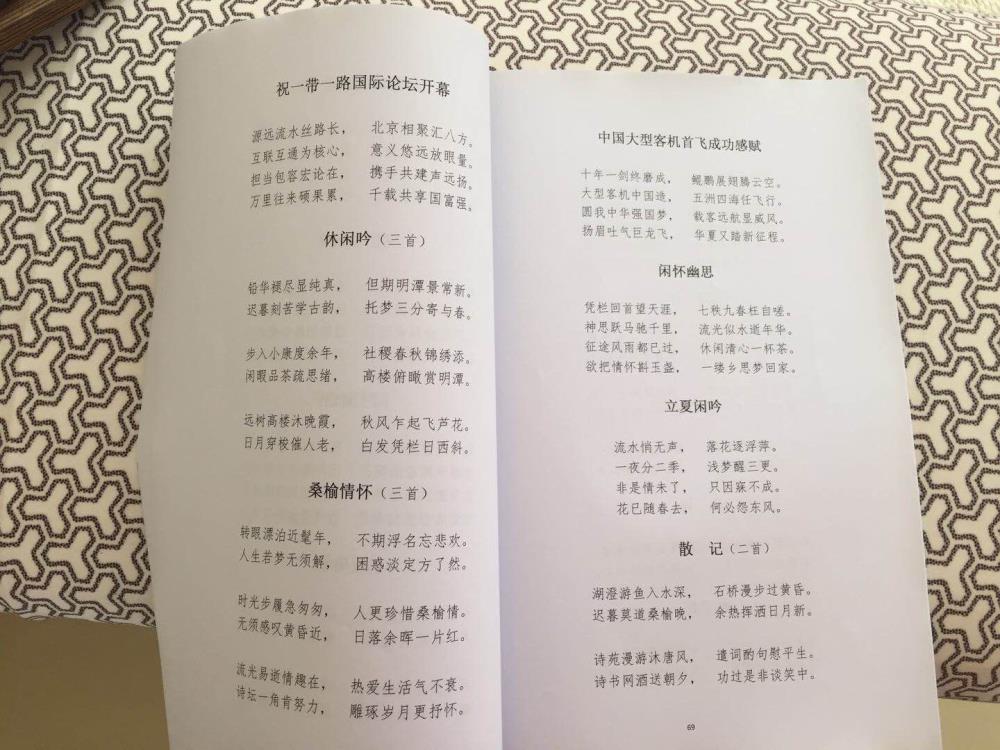 祝一带一路国际论坛开幕
源远流水丝路长， 北京相聚汇八方。
互联互通为核心， 意义悠远放眼量。
担当包容宏论在， 携手共建声远扬。
万里往来硕果累， 千载共享国富强。
休闲吟（三首）
铅华褪尽显纯真， 但期明潭景常新。
迟暮刻苦学古韵， 托梦三分寄与春。
步入小康度余年， 社稷春秋锦绣添。
闲暇品茶疏思绪， 高楼俯瞰赏明潭。
远树高楼沐晚霞， 秋风乍起飞芦花。
日月穿梭催人老， 白发凭栏日西斜。
桑榆情怀（三首）
转眼漂泊近髦年， 不期浮名忘悲欢。
人生若梦无须解， 困惑淡定方了然。
时光步履急匆匆， 人更珍惜桑榆情。
无须感叹黄昏近， 日落余晖一片红。
流光易逝情趣在， 热爱生活气不衰。
诗坛一角肯努力， 雕琢岁月更抒怀。
中国大型客机首飞成功感赋
十年一剑终磨成， 鲲鹏展翅腾云空。
大型客机中国造， 五洲四海任飞行。
圆我中华强国梦， 载客远航显威风。
扬眉吐气巨龙飞， 华夏又踏新征程。
闲怀幽思
凭栏回首望天涯， 七秩九春枉自嗟。
神思跃马驰千里， 流光似水道年华。
征途风雨都已过， 休闲清心一杯茶。
欲把情怀斟玉盏， 一缕乡思梦回家。
立夏闲吟
流水悄无声， 落花逐浮萍。
一夜分二季， 浅梦醒三更。
非是情未了， 只因寐不成。
花已随春去， 何必怨东风。
散 记（二首）
湖澄游鱼入水深， 石桥漫步过黄昏。
迟暮莫道桑榆晚， 余热挥洒日月新。
诗苑漫游沐唐风， 遣词酌句慰平生。
诗书网酒送朝夕， 功过是非谈笑中。
69